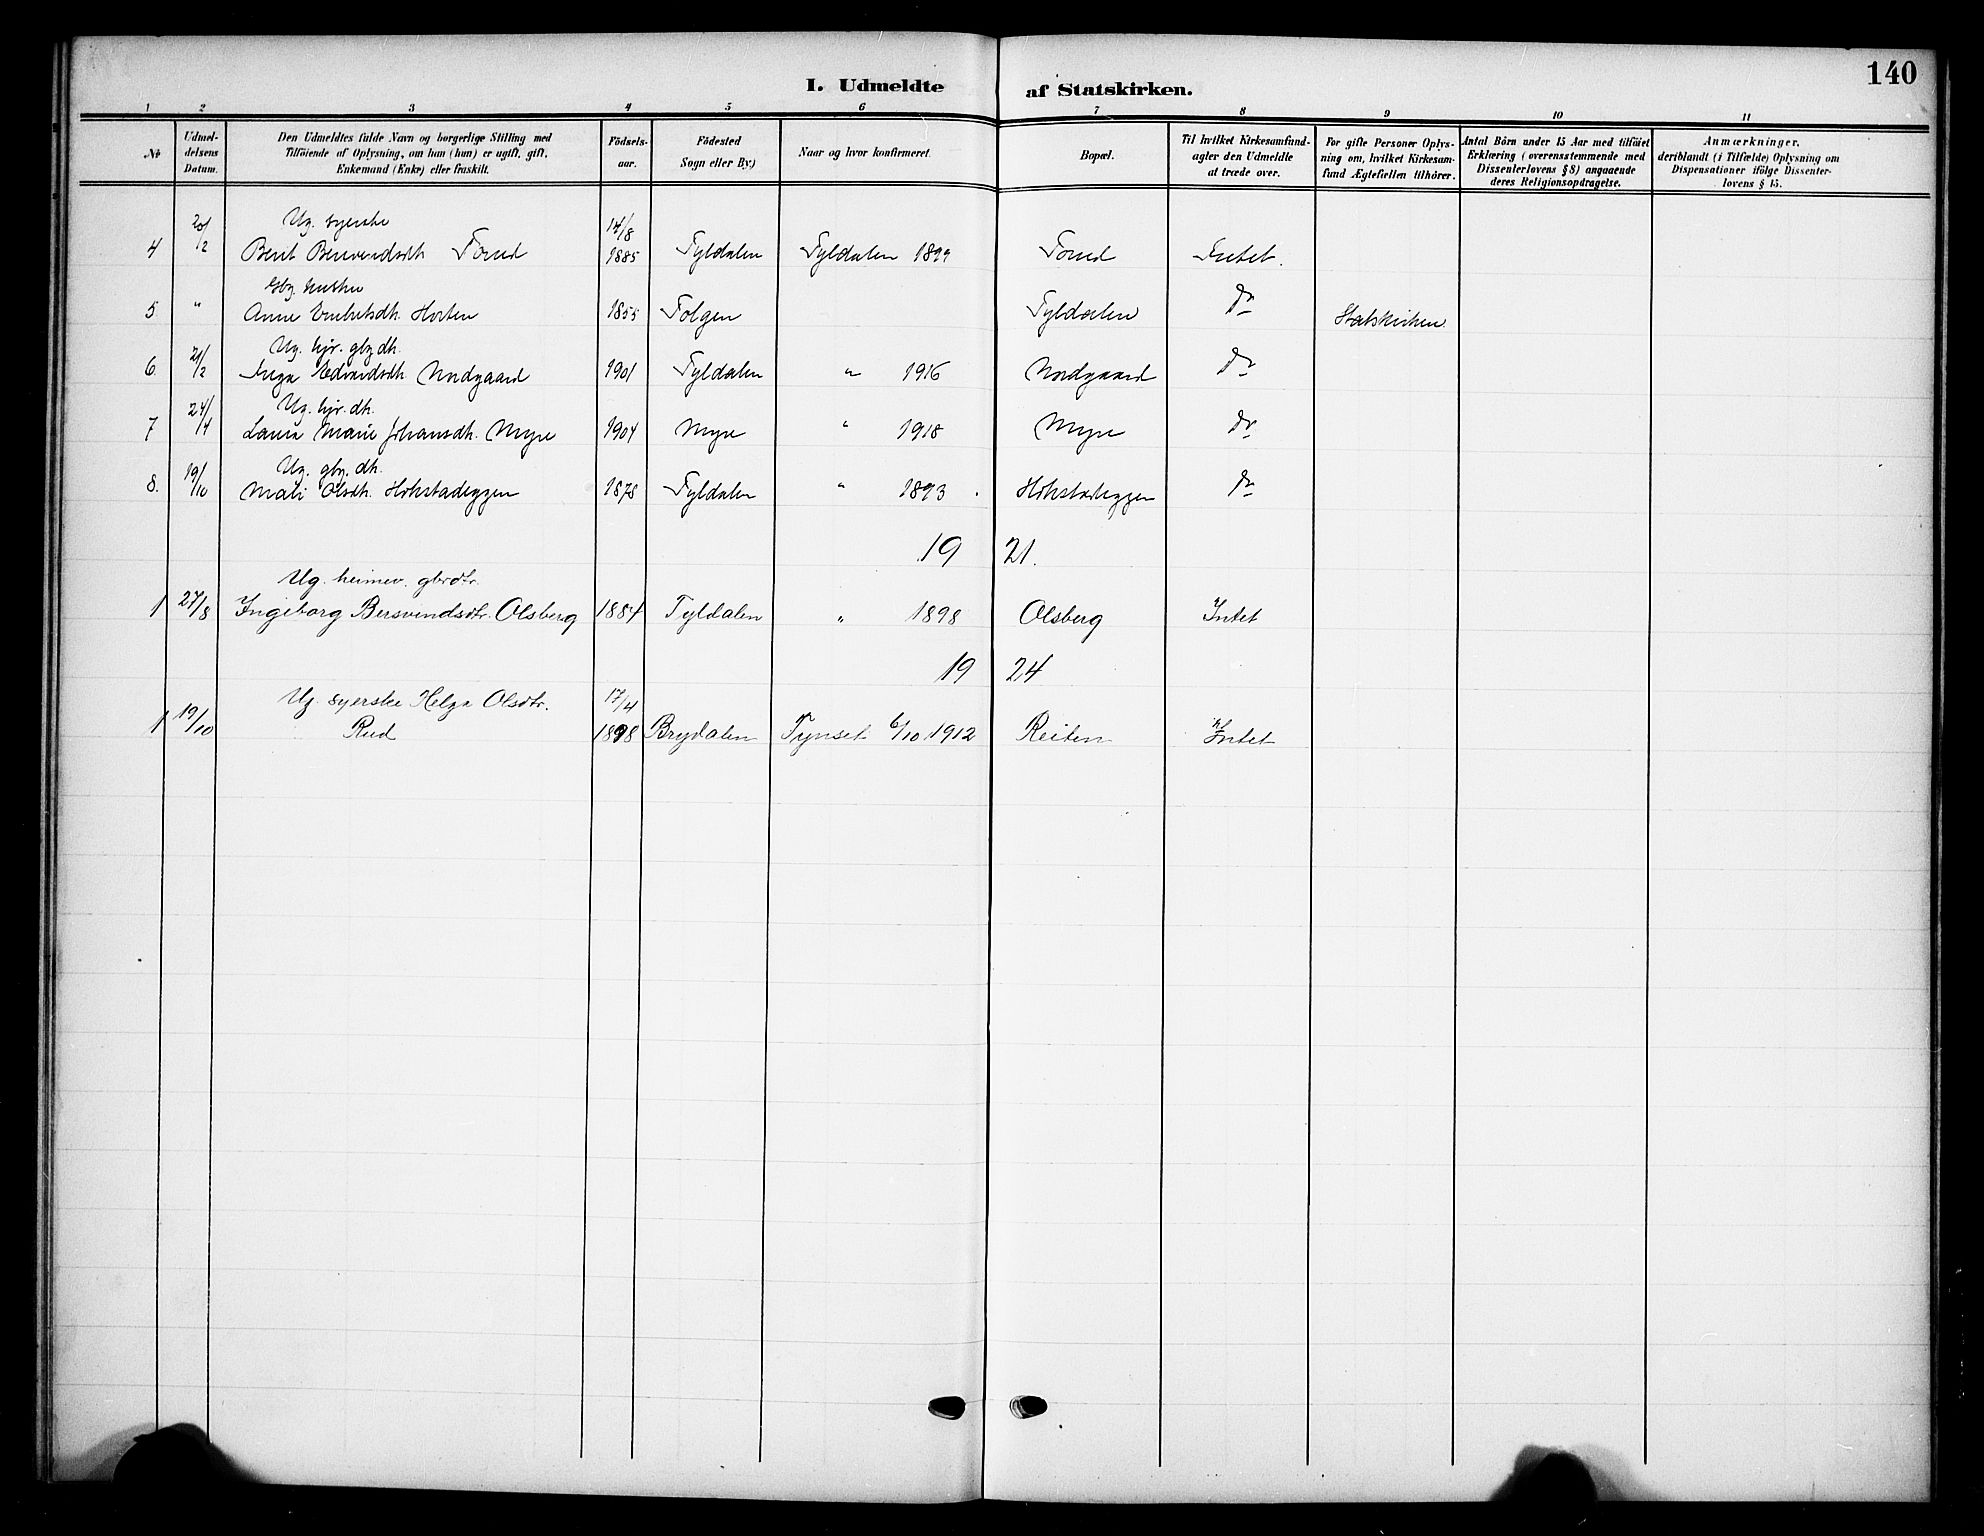 140
I. Udmeldte af Statskirken.
1 2 3 4 5 6 7 8 9 10 11
No
Udmel-
delsens
Datum.
Den Udmeldtes fulde Navn og borgerlige Stilling med
Tilföiende af Oplysning, om han (hun) er ugift, gift,
Enkemand (Enke) eller fraskilt.
Födsels-
aar.
Födested
Sogn eller By)
Naar og hvor konfirmeret.
Bopæl.
Til hvilket Kirkesamfund-
agter den Udmeldte
at træde over.
For gifte Personer Oplys-
ning om, hvilket Kirkesam-
fund Ægtefællen tilhörer.
Antal Börn under 15 Aar med tilföiet
Erklæring (overensstemmende med
Dissenterlovens § 8) angaaende
deres Religionsopdragelse.
Anmærkninger,
deriblandt (i Tilfælde) Oplysning om
Dispensationer ifölge Dissenter-
lovens § 15.
20/2 Ug. syerske 14/8
4 Berit Bersvendsdt. Tomd 1885 Tyldalen Tyldalen 1899 Tomd Intet.
Gbr. hustru
5 " Anne Embretsdt. Horten 1855 Tolgen Tyldalen do Statskirken
Ug. hjv. gbr. dt.
6. 21/2 Inga Edvardsdt. Nordgaard 1901 Tyldalen " 1916 Nordgaard do
Ug. hjv. dt.
7 24/4 Laura Marie Johansdt. Myre 1904 Myre " 1918 Myre do
Ug. gbr. dt.
8. 19/10 Mali Olsdt. Hokstadeggen 1878 Tyldalen " 1893 Hokstadeggen do
19 21.
Ug. heimev. gbrdtr.
1 27/8 Ingeborg Bersvendsdtr. Olsberg 1884 Tyldalen " 1898 Olsberg Intet
19 24
Ug. syerske Helga Olsdtr. 17/4
1 19/10 Rud 1898 Brydalen Tynset 6/10 1912 Reiten Intet